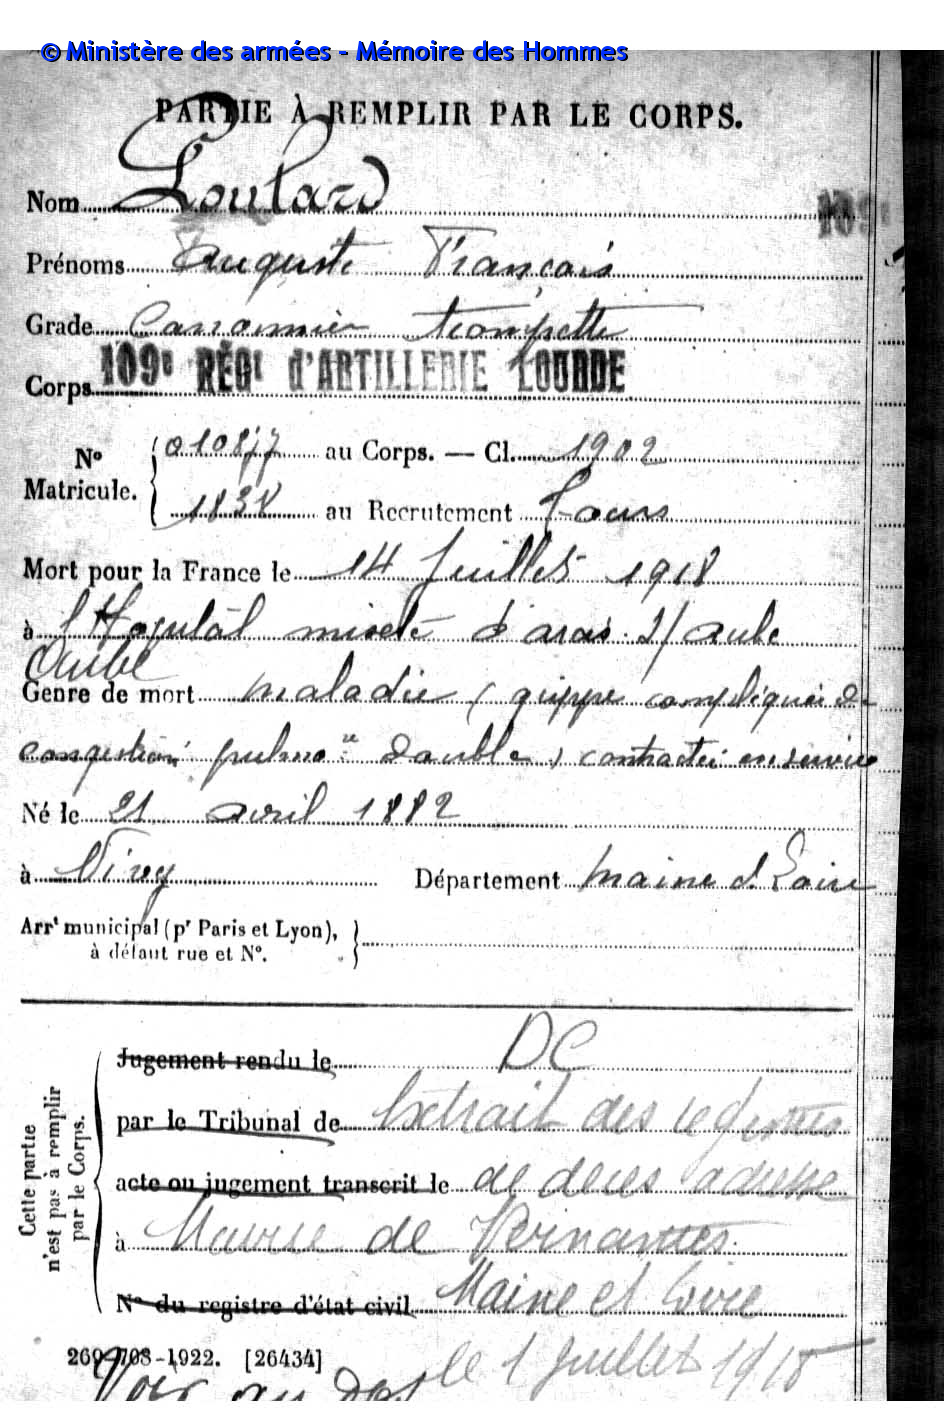 © Ministère des armées - Mémoire des Hommes
PARTIE À REMPLIR PAR LE CORPS.
Nom Loulard
109e
Prénoms Auguste Français
Grade Canonnier trompette
Corps 109e RÉGt d'ARTILLERIE LOURDE
No Matricule. { 010877 au Corps. — Cl. 1902
1838 au Recrutement Tours
Mort pour la France le 14 Juillet 1918
à l'Hopital mixte d'arcis s/ aube
Aube
Genre de mort maladie (grippe compliquée de
congestion pulmore double) contractée en service
Né le 21 avril 1882
à Vivy Département Maine & Loire
Arrt municipal (pr Paris et Lyon),
à défaut rue et No.
Cette partie n'est pas à remplir par le Corps.
DC
Jugement rendu le
par le Tribunal de Extrait des registres
acte ou jugement transcrit le de deces adresse
à Mairie de Vernantes
No du registre d'état civil Maine et Loire
269-708-1922. [26434]
le 1 Juillet 1918
Voir au dos